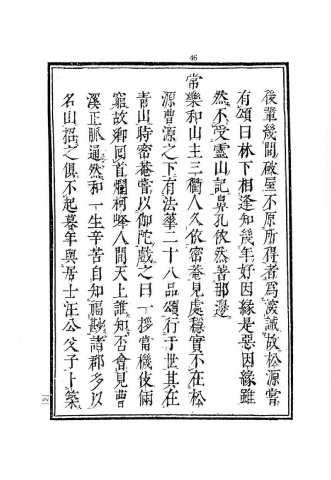 46
後輩幾聞破屋不原所得者爲深誡故松源嘗
有頌曰林下相逢知幾年好因緣是惡因緣雖
然不受靈山記鼻孔依然著那邊
常樂和山主三衢人久依密菴見處穩實不在松
源曹源之下有法華二十八品頌行于世其在
靑山時密菴嘗以伽陀戲之曰一拶當機伎倆
窮故鄕囘首爛柯峰人間天上誰知否會見曹
溪正脈通然和一生辛苦自知福尠諸郡多以
名山招之俱不起暮年與居士汪公父子卜築